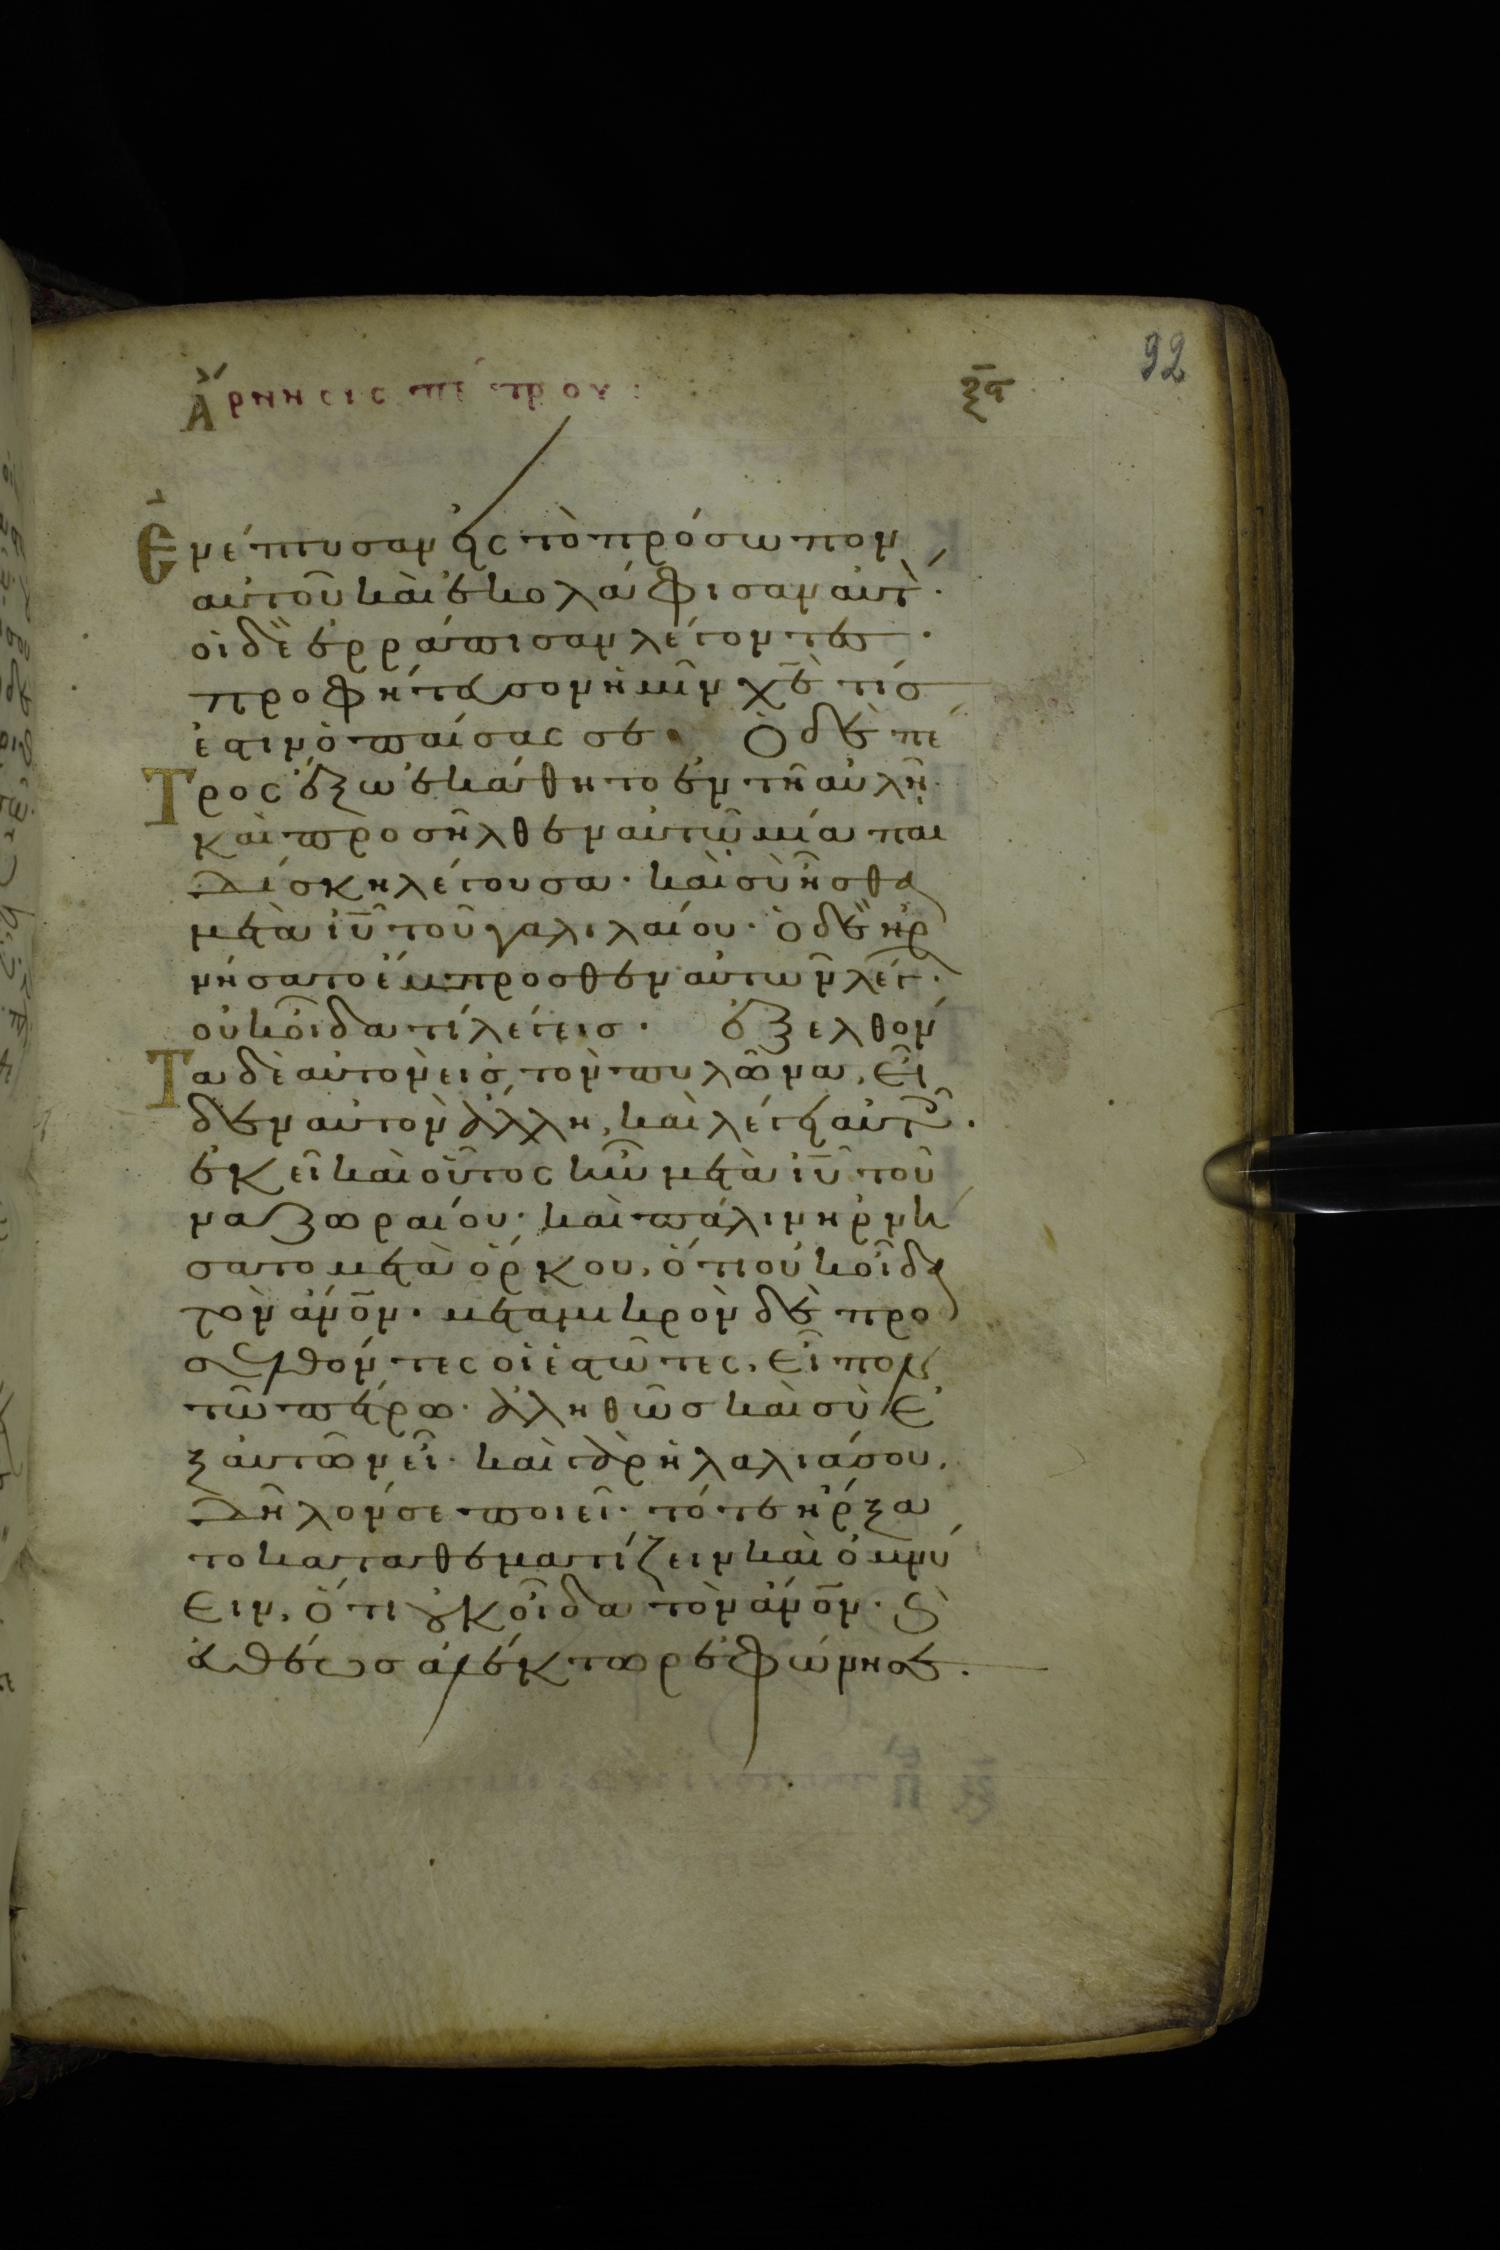 92
Ἄρνησις πέτρου: ξα
Ἐνέπτυσαν εἰς τὸ πρόσωπον
αὐτοῦ καὶ ἐκολάφισαν αὐτὸ·
οἱ δὲ ἐρράπισαν λέγοντες·
προφήτευσον ἡμῖν χε̅ τίς
ἐστιν ὁ παίσας σε· Ὁ δὲ πέ
Τρος ἔξω ἐκάθητο ἐν τῆ αὐλῆ·
καὶ προσῆλθεν αὐτῶ μία παι
δίσκη λέγουσα· καὶ σὺ ἦσθα
μετὰ ιυ̅ τοῦ γαλιλαίου· ὁ δὲ ἠρ
νήσατο ἔμπροσθεν αὐτῶν λέγ·
οὐκ οἶδα τί λέγεις· ἐξελθόν
Τα δὲ αὐτὸν εἰς τὸν πυλῶνα, εἶ
δεν αὐτὸν ἄλλη, καὶ λέγει αὐτοῖς·
ἐκεῖ καὶ οὗτος ἦν μετὰ ιυ̅ τοῦ
ναζωραίου· καὶ πάλιν ἠρνή
σατο μετὰ ὅρκου, ὅτι οὐκ οἶδα
τὸν ἀνο̅ν· μετὰ μικρὸν δὲ προ
σελθόντες οἱ ἑστῶτες, εἶπον
τῶ πέτρω· ἀληθῶς καὶ σὺ ἐ
ξ αὐτῶν εἶ· καὶ γὰρ ἡ λαλιά σου,
δῆλον σε ποιεῖ· τότε ἤρξα
το καταθεματίζειν καὶ ὀμνύ
ειν, ὅτι οὐκ οἶδα τὸν ἀνο̅ν· ϗ
εὐθέως ἀλέκτωρ ἐφώνησε·